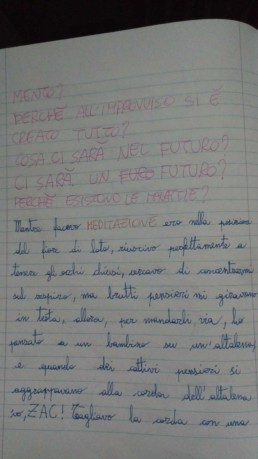 MENTO?
PERCHÉ ALL'IMPROVVISO SI È
CREATO TUTTO?
COSA CI SARÀ NEL FUTURO?
CI SARÀ UN FUTURO?
PERCHÉ ESISTONO LE MALATTIE?
Mentre facevo MEDITAZIONE ero nella posizione
del fior di loto, riuscivo perfettamente a
tenere gli occhi chiusi, cercavo di concentrarmi
sul respiro, ma brutti pensieri mi giravano
in testa, allora, per mandarli via, ho
pensato a un bambino su un'altalena,
e quando dei cattivi pensieri si
aggrappavano alla corda dell'altalena
io, ZAC! Tagliavo la corda con una